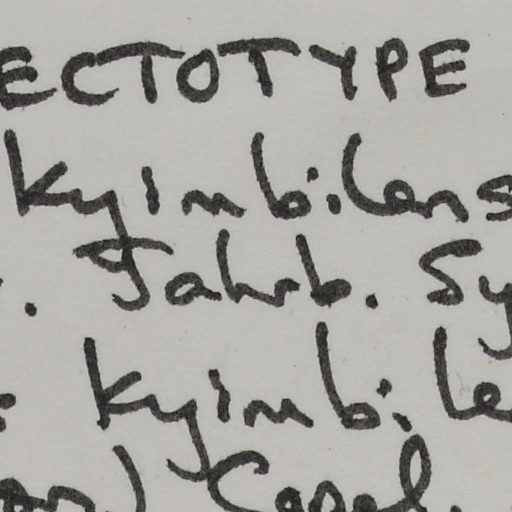 ECTOTYPE
kyimbilens
. Jahrb. Sy
: kyimbile
) Capel.